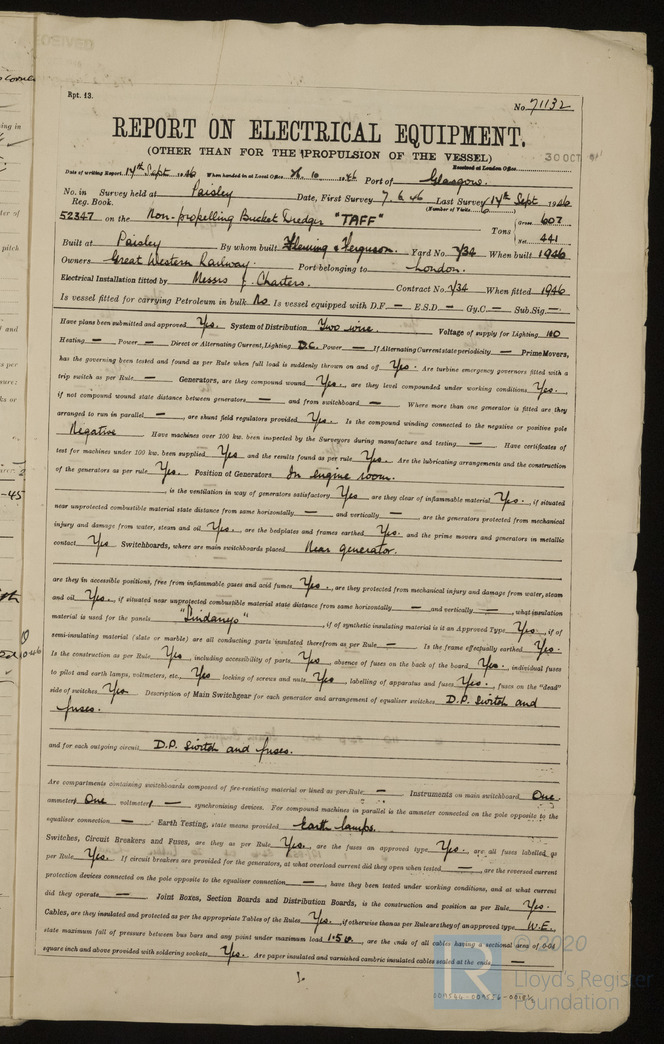 Rpt. 13.
No. 71132
REPORT ON ELECTRICAL EQUIPMENT.
(OTHER THAN FOR THE PROPULSION OF THE VESSEL)
Received at London Office 30 OCT
Date of writing Report 14th Sept 1946 When handed in at Local Office 10 1946 Port of Glasgow.
No. in Reg. Book. Survey held at Paisley Date, First Survey 7. 6. 46 Last Survey 14th Sept 1946
(Number of Visits 6)
52347 on the Non-propelling Bucket Dredger "TAFF" Tons Gross 607 Net 441
Built at Paisley By whom built Fleming & Ferguson. Yard No. 734 When built 1946
Owners Great Western Railway. Port belonging to London.
Electrical Installation fitted by Messrs J. Charters. Contract No. 734 When fitted 1946
Is vessel fitted for carrying Petroleum in bulk No Is vessel equipped with D.F. — E.S.D. — Gy.C. — Sub.Sig. —
Have plans been submitted and approved Yes. System of Distribution Two wire. Voltage of supply for Lighting 110
Heating — Power — Direct or Alternating Current, Lighting D.C. Power — If Alternating Current state periodicity — Prime Movers,
has the governing been tested and found as per Rule when full load is suddenly thrown on and off Yes. Are turbine emergency governors fitted with a
trip switch as per Rule — Generators, are they compound wound Yes., are they level compounded under working conditions Yes.,
if not compound wound state distance between generators — and from switchboard — Where more than one generator is fitted are they
arranged to run in parallel —, are shunt field regulators provided Yes. Is the compound winding connected to the negative or positive pole
Negative Have machines over 100 kw. been inspected by the Surveyors during manufacture and testing —. Have certificates of
test for machines under 100 kw. been supplied Yes and the results found as per rule Yes. Are the lubricating arrangements and the construction
of the generators as per rule Yes. Position of Generators In engine room.
, is the ventilation in way of generators satisfactory Yes are they clear of inflammable material Yes., if situated
near unprotected combustible material state distance from same horizontally — and vertically —, are the generators protected from mechanical
injury and damage from water, steam and oil Yes., are the bedplates and frames earthed Yes. and the prime movers and generators in metallic
contact Yes Switchboards, where are main switchboards placed Near generator.
are they in accessible positions, free from inflammable gases and acid fumes Yes., are they protected from mechanical injury and damage from water, steam
and oil Yes., if situated near unprotected combustible material state distance from same horizontally — and vertically —, what insulation
material is used for the panels "Sindanyo", if of synthetic insulating material is it an Approved Type Yes, if of
semi-insulating material (slate or marble) are all conducting parts insulated therefrom as per Rule —. Is the frame effectually earthed Yes.
Is the construction as per Rule Yes, including accessibility of parts Yes, absence of fuses on the back of the board Yes., individual fuses
to pilot and earth lamps, voltmeters, etc. Yes locking of screws and nuts Yes, labelling of apparatus and fuses Yes., fuses on the "dead"
side of switches Yes Description of Main Switchgear for each generator and arrangement of equaliser switches D.P. Switch and
fuses.
and for each outgoing circuit D.P. Switch and fuses.
Are compartments containing switchboards composed of fire-resisting material or lined as per Rule —. Instruments on main switchboard One
ammeters One voltmeters — synchronising devices. For compound machines in parallel is the ammeter connected on the pole opposite to the
equaliser connection — Earth Testing, state means provided Earth lamps.
Switches, Circuit Breakers and Fuses, are they as per Rule Yes., are the fuses an approved type Yes., are all fuses labelled as
per Rule Yes. If circuit breakers are provided for the generators, at what overload current did they open when tested —, are the reversed current
protection devices connected on the pole opposite to the equaliser connection —, have they been tested under working conditions, and at what current
did they operate — Joint Boxes, Section Boards and Distribution Boards, is the construction and position as per Rule Yes.
Cables, are they insulated and protected as per the appropriate Tables of the Rules Yes., if otherwise than as per Rule are they of an approved type W.E.
state maximum fall of pressure between bus bars and any point under maximum load 1.5 v., are the ends of all cables having a sectional area of 0.04
square inch and above provided with soldering sockets Yes. Are paper insulated and varnished cambric insulated cables sealed at the ends —
© 2020
Lloyd's Register
Foundation